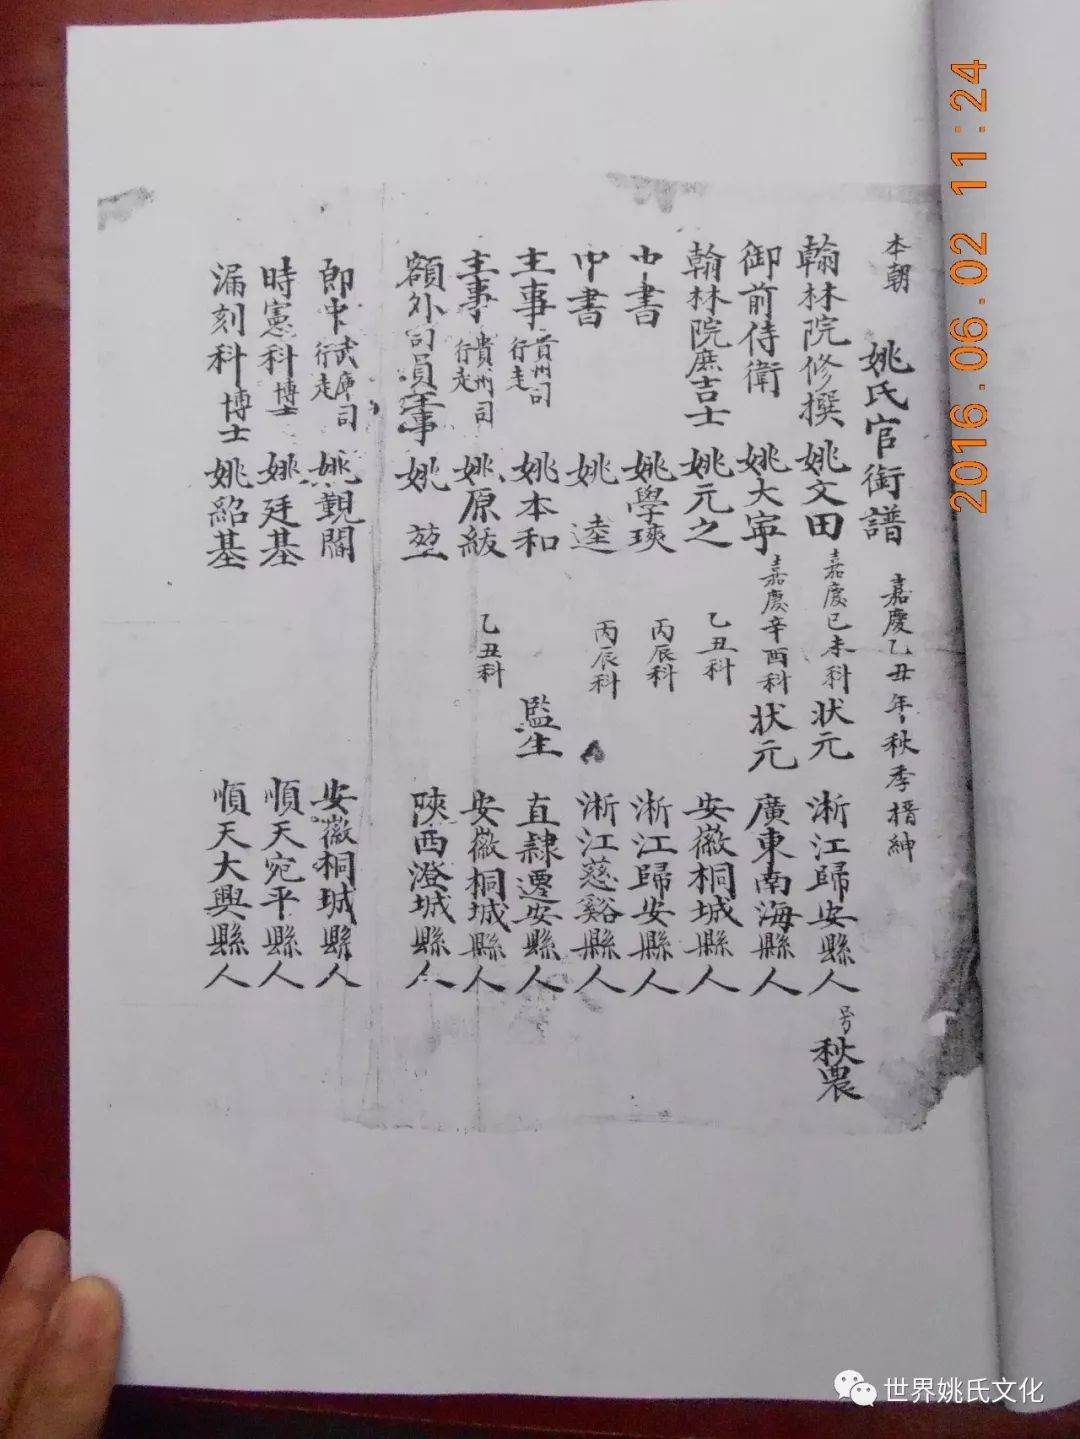 本朝 姚氏官銜譜 嘉慶乙丑年秋季搢紳
翰林院修撰 姚文田 嘉慶己未科 状元 淅江歸安縣人 号秋農
御前侍衛 姚大寧 嘉慶辛酉科 状元 廣東南海縣人
翰林院庶吉士 姚元之 乙丑科 安徽桐城縣人
中書 姚學塽 丙辰科 淅江歸安縣人
中書 姚逵 丙辰科 淅江慈谿縣人
主事 貴州司行走 姚本和 監生 直隸遷安縣人
主事 貴州司行走 姚原紱 乙丑科 安徽桐城縣人
額外司員主事 姚堃 陝西澄城縣人
郎中 武庫司行走 姚觀閶 安徽桐城縣人
時憲科博士 姚廷基 順天宛平縣人
漏刻科博士 姚紹基 順天大興縣人
2016.06.02 11:24
世界姚氏文化